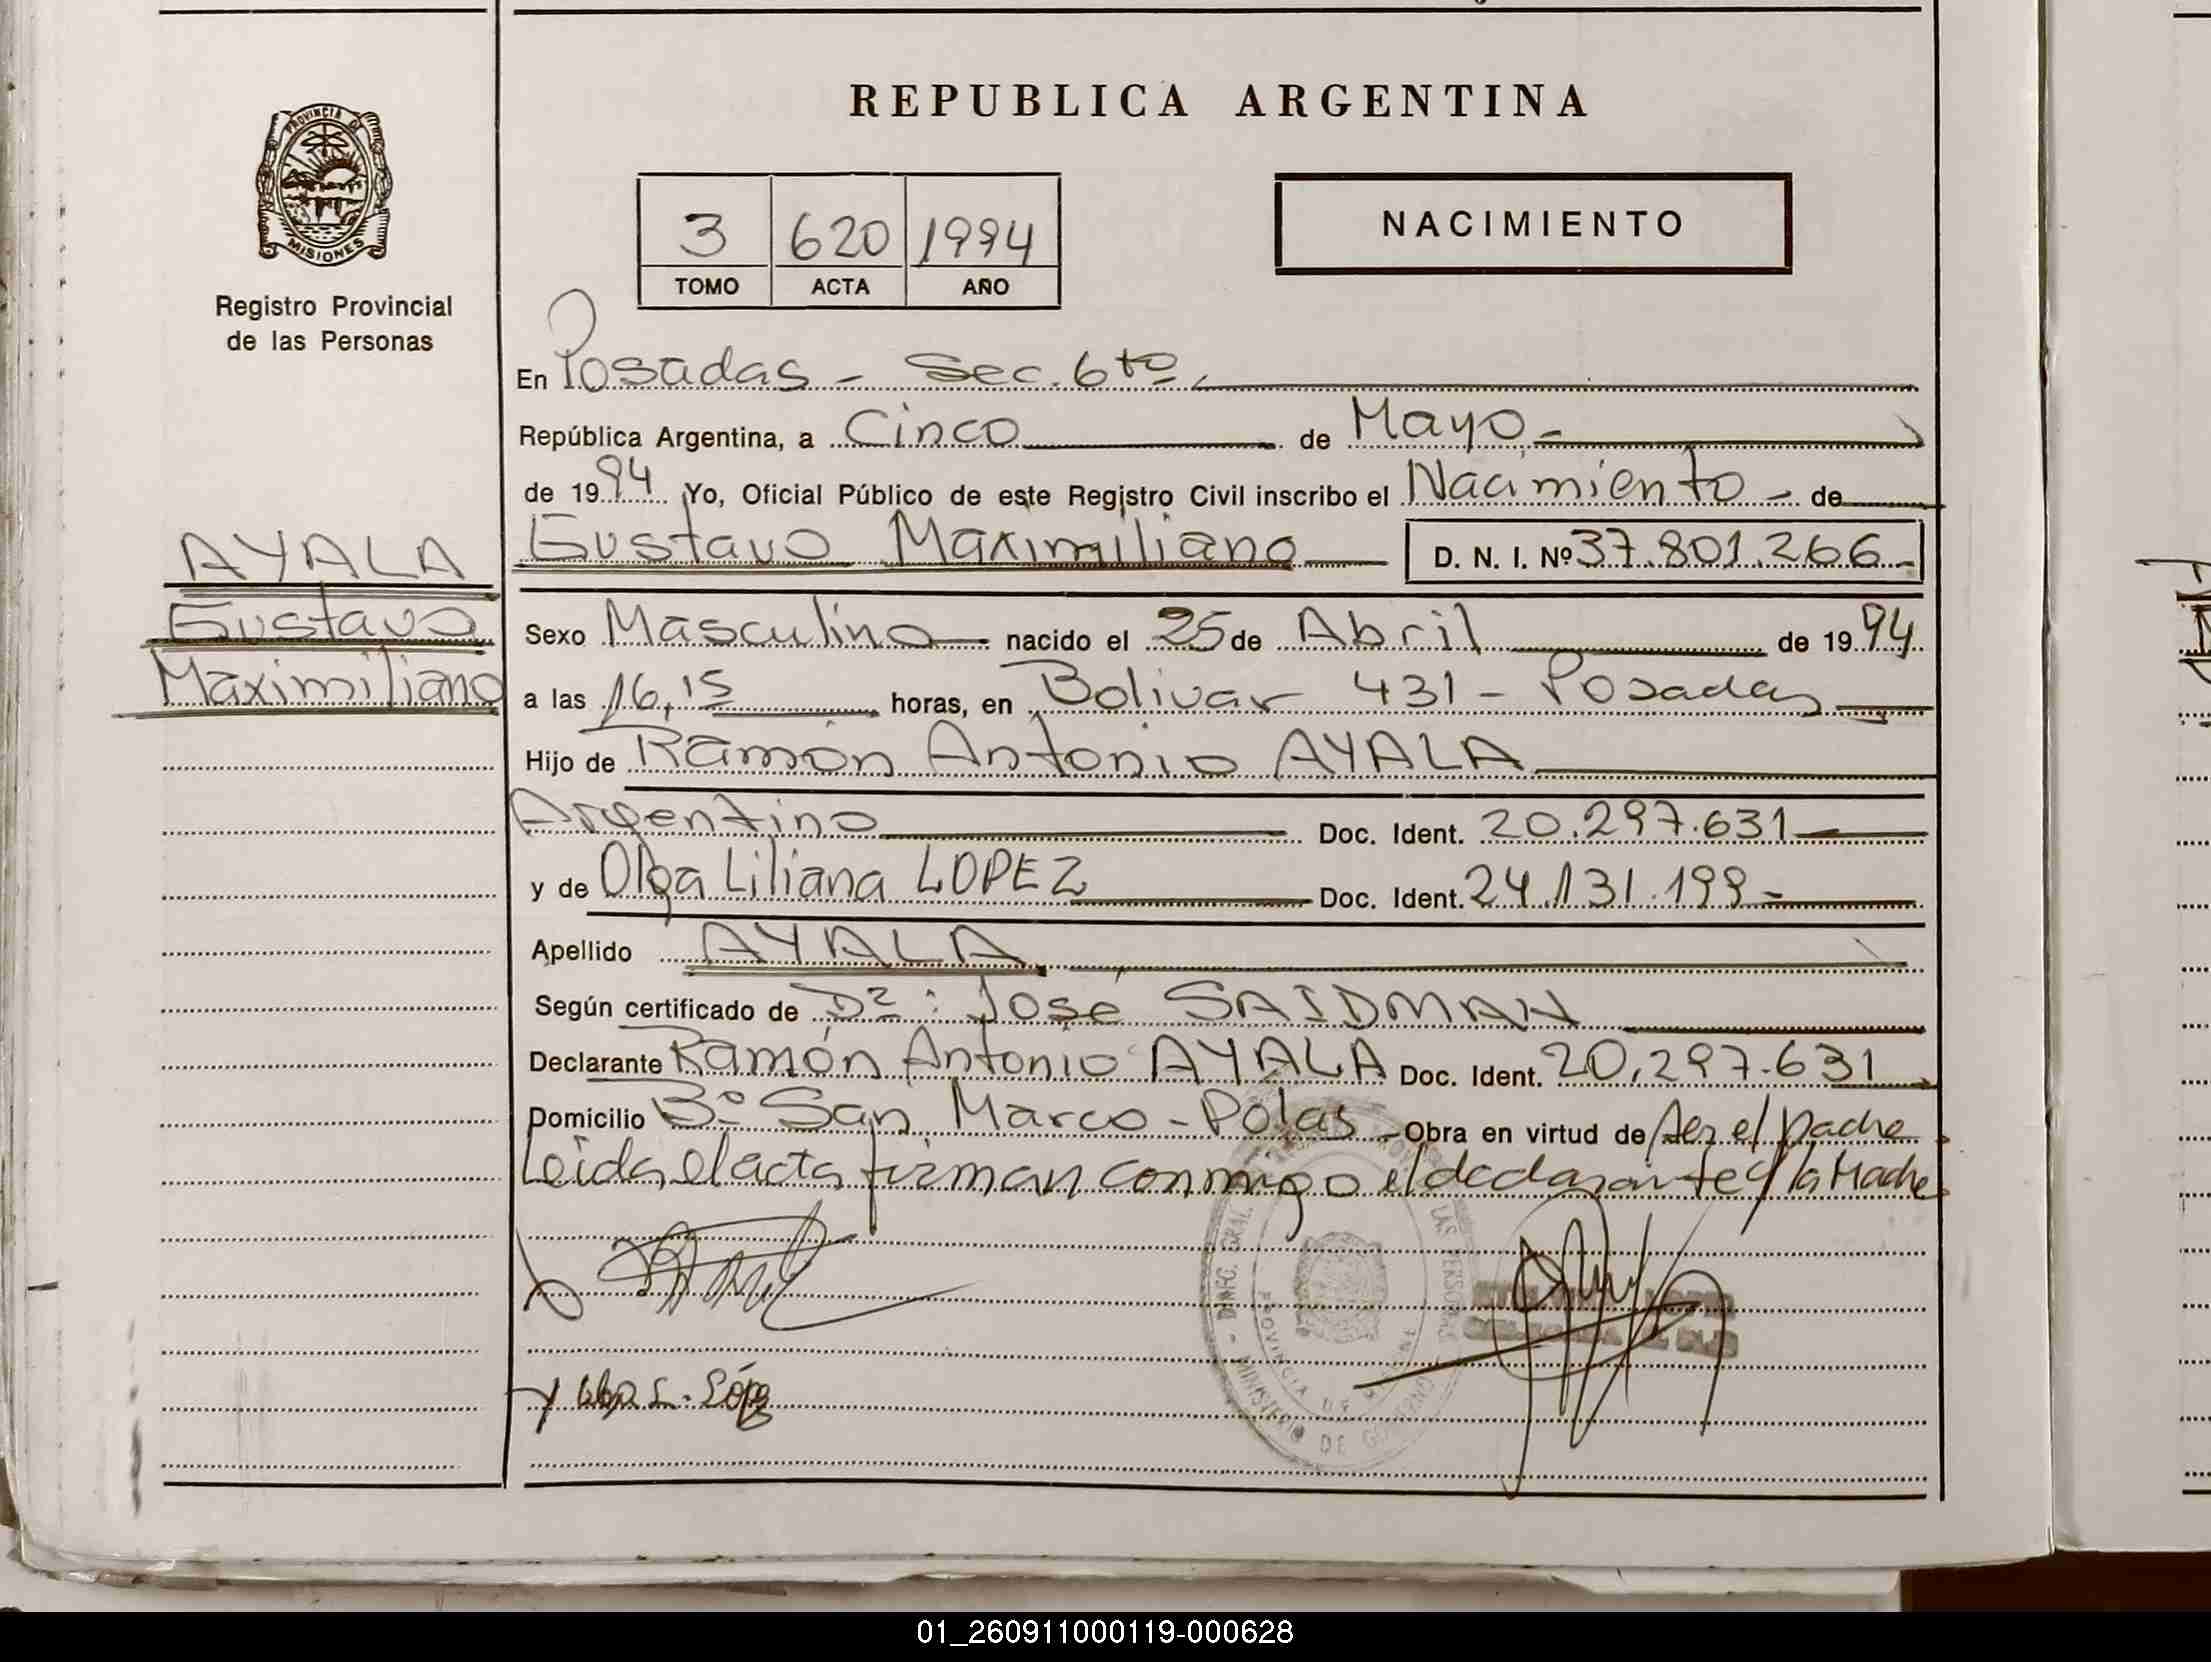 REPUBLICA ARGENTINA
PROVINCIA DE
MISIONES
Registro Provincial
de las Personas
3 620 1994
TOMO ACTA AÑO
NACIMIENTO
En Posadas - Sec. 6to
República Argentina, a Cinco de Mayo -
de 1994 Yo, Oficial Público de este Registro Civil inscribo el Nacimiento - de
AYALA
Gustavo
Maximiliano
Gustavo Maximiliano D. N. I. Nº 37.801.266 -
Sexo Masculino nacido el 25 de Abril de 1994
a las 16,15 horas, en Bolivar 431 - Posadas
Hijo de Ramón Antonio AYALA
Argentino Doc. Ident. 20.297.631
y de Olga Liliana LOPEZ Doc. Ident. 24.131.199 -
Apellido AYALA
Según certificado de Dr: José SAIDMAN
Declarante Ramón Antonio AYALA Doc. Ident. 20.297.631
Domicilio Bº San Marco - Pdas - Obra en virtud de ser el padre
Leida el acta firman conmigo el declarante y la Madre
MINISTERIO DE GOBIERNO
LAS PERSONAS
PROVINCIA DE
01_260911000119-000628